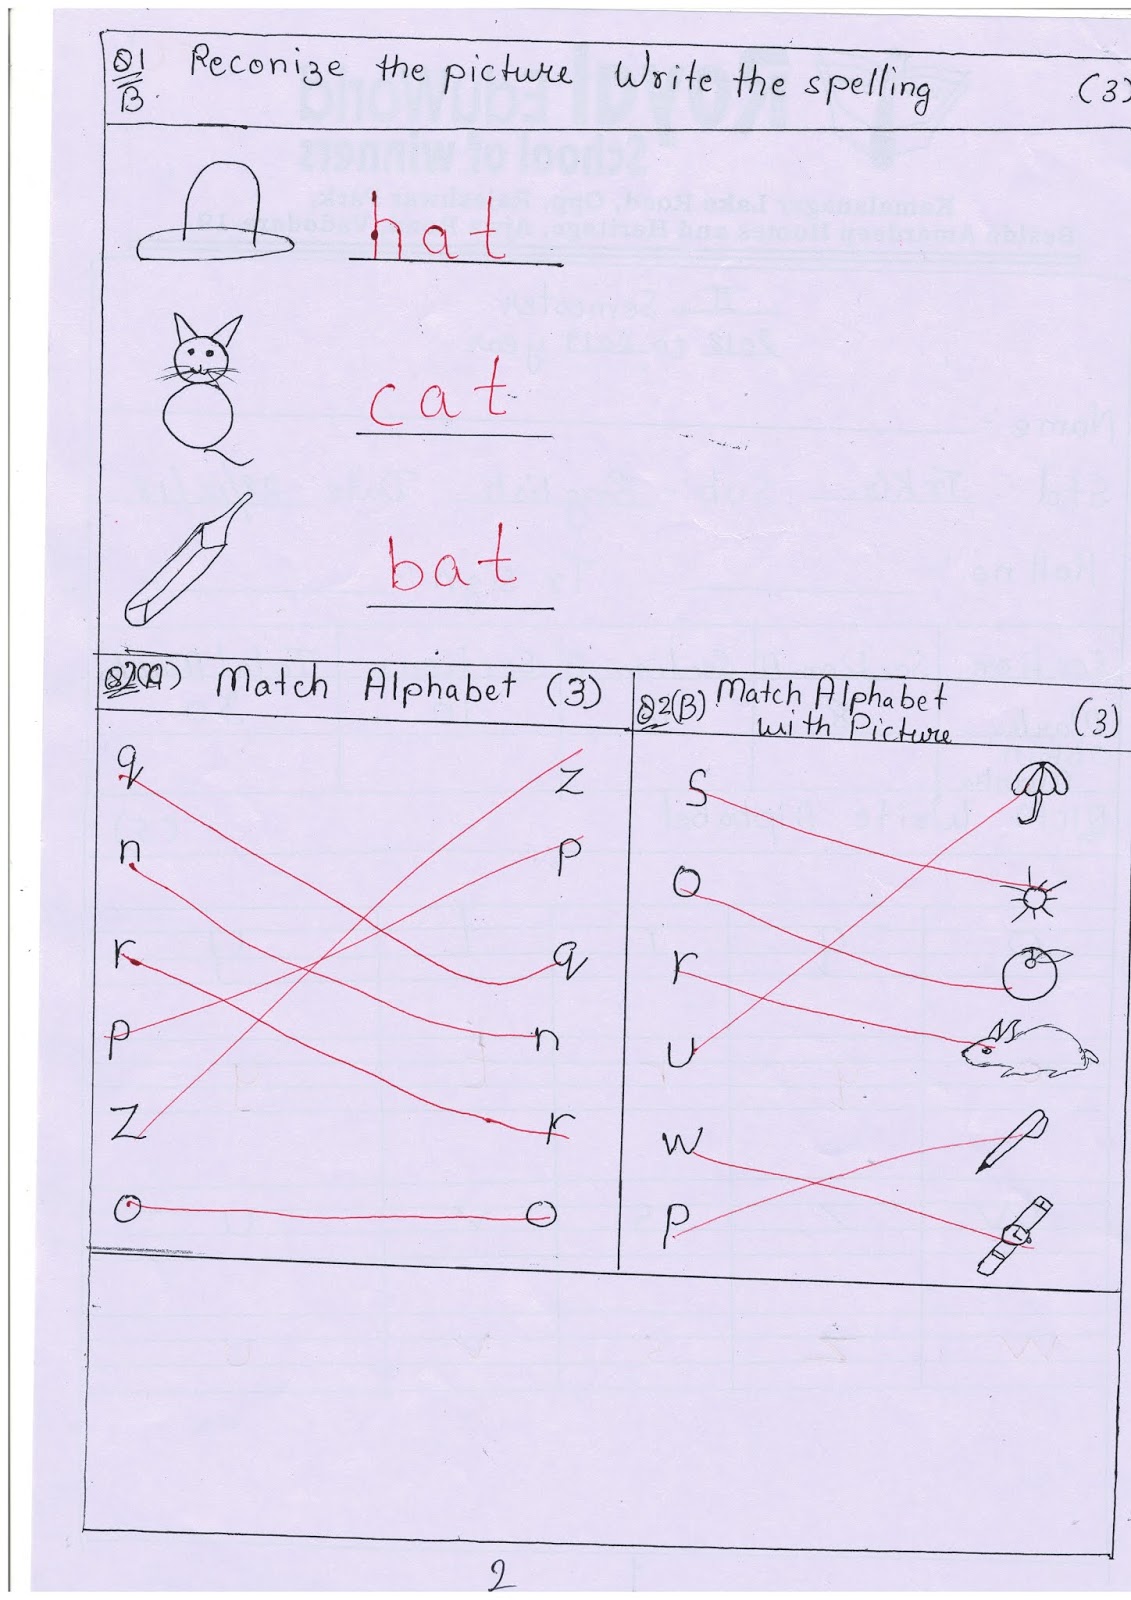 Q1 B. Reconize the picture Write the spelling (3)
hat
cat
bat
Q2(A) Match Alphabet (3)
q z
n p
r q
p n
z r
o o
Q2(B) Match Alphabet with Picture (3)
s
o
r
u
w
p
2